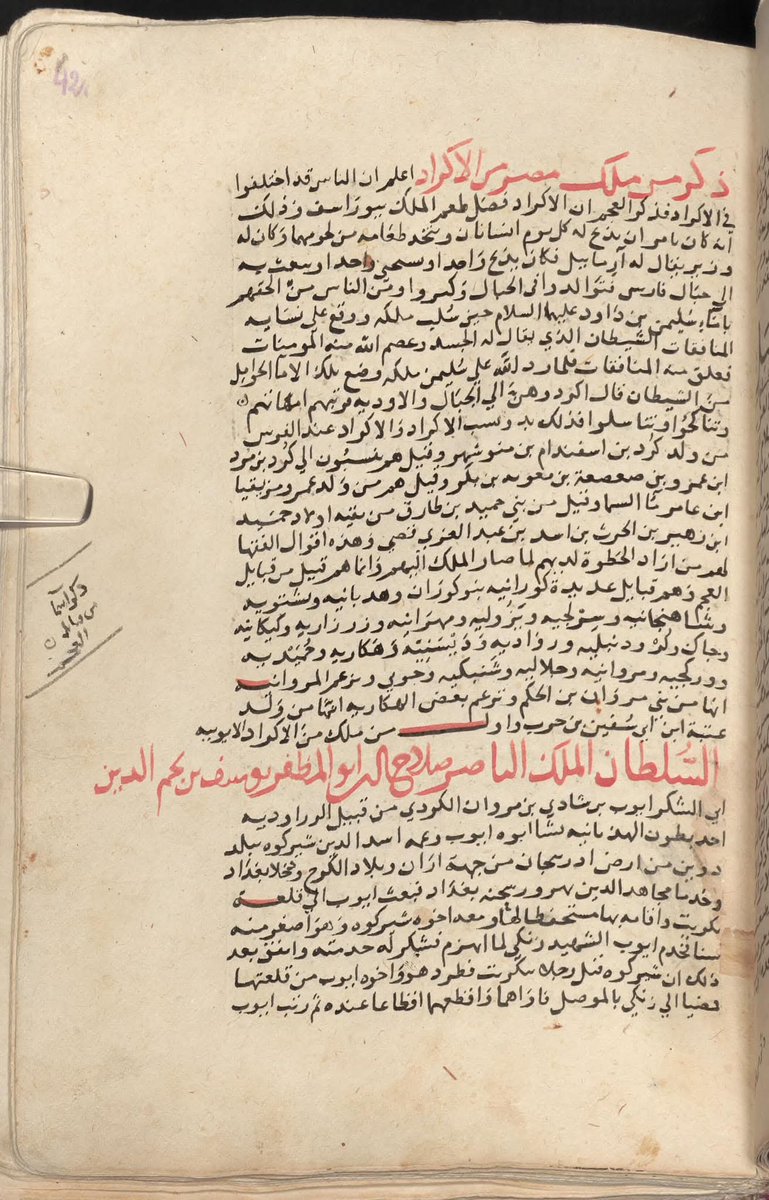 42
ذكر من ملك مصر من الاكراد اعلم ان الناس قد اختلفوا
في الاكراد فذكر العجم ان الاكراد فضل طعم الملك بيوراسف وذلك
انه كان يامر ان يذبح له كل يوم انسانان ويتخذ طعامه من لحومهما وكان له
وزير يقال له ارماييل فكان يذبح واحدا ويستحي واحدا ويبعث به
الى جبال فارس فتوالدوا في الجبال وكثروا ومن الناس من الحقهم
باماء سليمن بن داود عليهما السلام حين سلب ملكه ووقع على نسايه
المنافقات الشيطان الذي يقال له الجسد وعصم الله منه المومنات
فعلق منه المنافقات فلما رد الله على سليمن ملكه وضع تلك الاما الحوامل
من الشيطان قال اكردوهن الى الجبال والاودية فربتهم امهاتهم
وتناكحوا وتناسلوا فذلك بدو نسب الاكراد والاكراد عند الفرس
من ولد كرد بن اسفندام بن منوشهر وقيل هم ينسبون الى كرد بن مرد
ابن عمرو بن صعصعة بن معوية بن بكر وقيل هم من ولد عمرو مزيقيا
ابن عامر ما السما وقيل من بني حميد بن طارق من بقية اولاد حميد
ابن زهير بن الحرث بن اسد بن عبد العزى بن قصي وهذه اقوال الفقها
لهم من اراد الحظوة لديهم لما صار الملك اليهم وانما هم قبيل من قبايل
العجم وهم قبايل عديدة كورانيه بنو كوران وهدبانيه وبشتويه
وشاهنجانيه وسرلجيه ويزوليه ومهرانيه وزرزاريه وكيكانيه
وجاك وكرد ودنبليه وروادية وديسنيه وهكاريه وحميديه
ووركجيه ومروانيه وجلاليه وشنبكيه وجوبي وتزعم المروانيه
انها من بني مروان بن الحكم وتزعم بعض الهكاريه انها من ولد
عتبة ابن ابي سفين بن حرب واول من ملك من الاكراد الايوبيه
السلطان الملك الناصر صلاح الدين ابو المظفر يوسف بن نجم الدين
ابي الشكر ايوب بن شادي بن مروان الكردي من قبيل الرواديه
احد بطون الهذبانيه نشا ابوه ايوب وعمه اسد الدين شيركوه ببلد
دوين من ارض ادربيجان من جهة اران وبلاد الكرج ودخلا بغداد
وخدما مجاهد الدين بهروز شحنه بغداد فبعث ايوب الى قلعة
تكريت واقامه بها مستحفظا لها ومعه اخوه شيركوه وهو اصغر منه
سنا فخدم ايوب الشهيد زنكي لما انهزم فشكر له خدمته واتفق بعد
ذلك ان شيركوه قتل رجلا بتكريت فطرد هو واخوه ايوب من قلعتها
فمضيا الى زنكي بالموصل فاواهما واقطعهما اقطاعا عنده ثم رتب ايوب